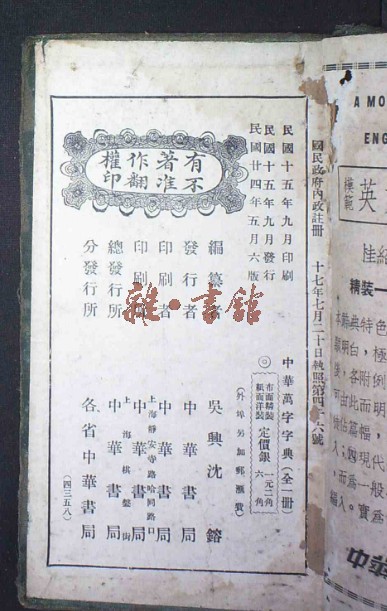 國民政府內政註冊 十七年七月二十日執照第四十六號
民國十五年九月印刷
民國十五年九月發行
民國廿四年五月六版
中華萬字字典(全一冊)
布面精裝 定價銀 一元二角
紙面洋裝 定價銀 六角
(外埠另加郵滙費)
有著作權
不准翻印
編纂者 吳興沈鎔
發行者 中華書局
印刷者 中華書局
印刷所 上海靜安寺路哈同路口 中華書局
總發行所 上海棋盤街 中華書局
分發行所 各省中華書局
(四三五八)
雜·書館
A MO
ENG
模範
英
精裝一
中華